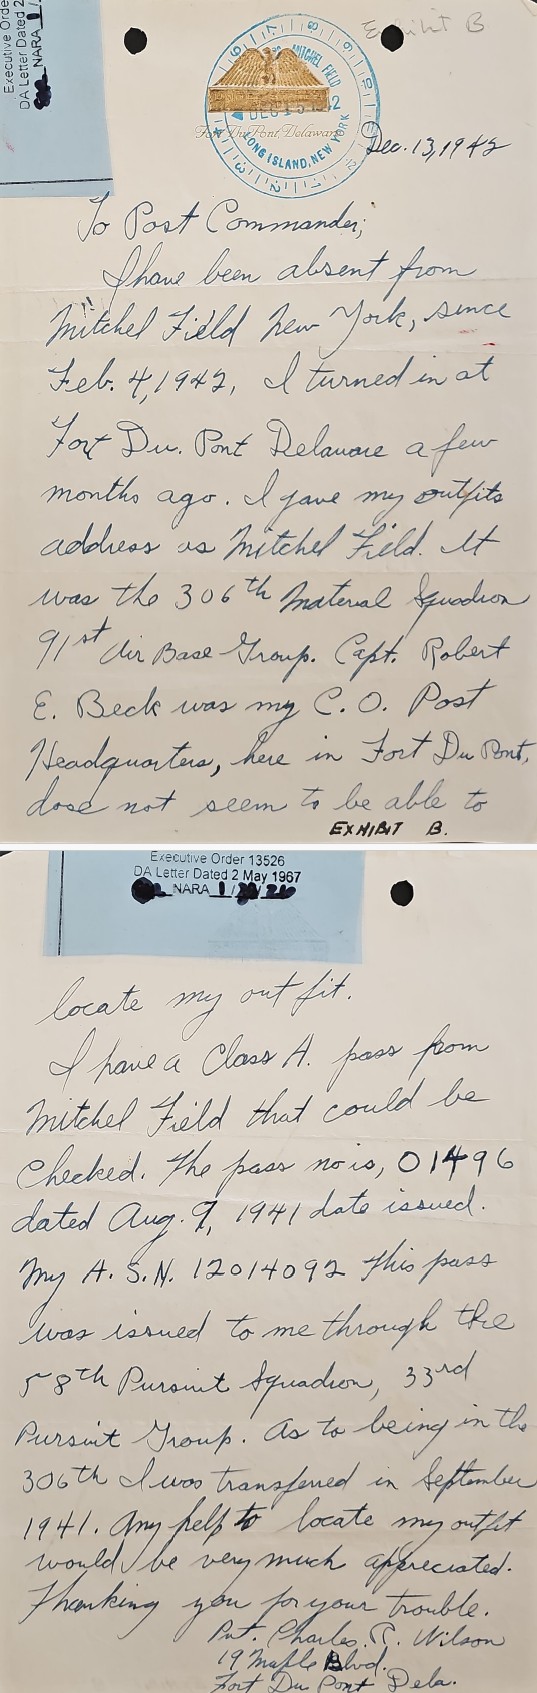 Executive Order
DA Letter Dated 2
NARA 1/
Exhibit B
MITCHEL FIELD
DEC 15 1942
LONG ISLAND, NEW YORK
Fort Du Pont Delaware
Dec. 13, 1942
To Post Commander;
I have been absent from
Mitchel Field New York, since
Feb. 4, 1942, I turned in at
Fort Du. Pont Delaware a few
months ago. I gave my outfits
address as Mitchel Field. It
was the 306th Material Squadron
91st Air Base Group. Capt. Robert
E. Beck was my C. O. Post
Headquarters, here in Fort Du Pont,
dose not seem to be able to
EXHIBIT B.
Executive Order 13526
DA Letter Dated 2 May 1967
NARA 1/
locate my out fit.
I have a Class A. pass from
Mitchel Field that could be
checked. The pass no is, 01496
dated Aug. 9, 1941 date issued.
My A. S. N. 12014092 This pass
was issued to me through the
58th Pursuit Squadron, 33rd
Pursuit Group. As to being in the
306th I was transferred in September
1941. Any help to locate my outfit
would be very much appreciated.
Thanking you for your trouble.
Pvt. Charles. R. Wilson
19 Maple Blvd.
Fort Du Pont Dela.